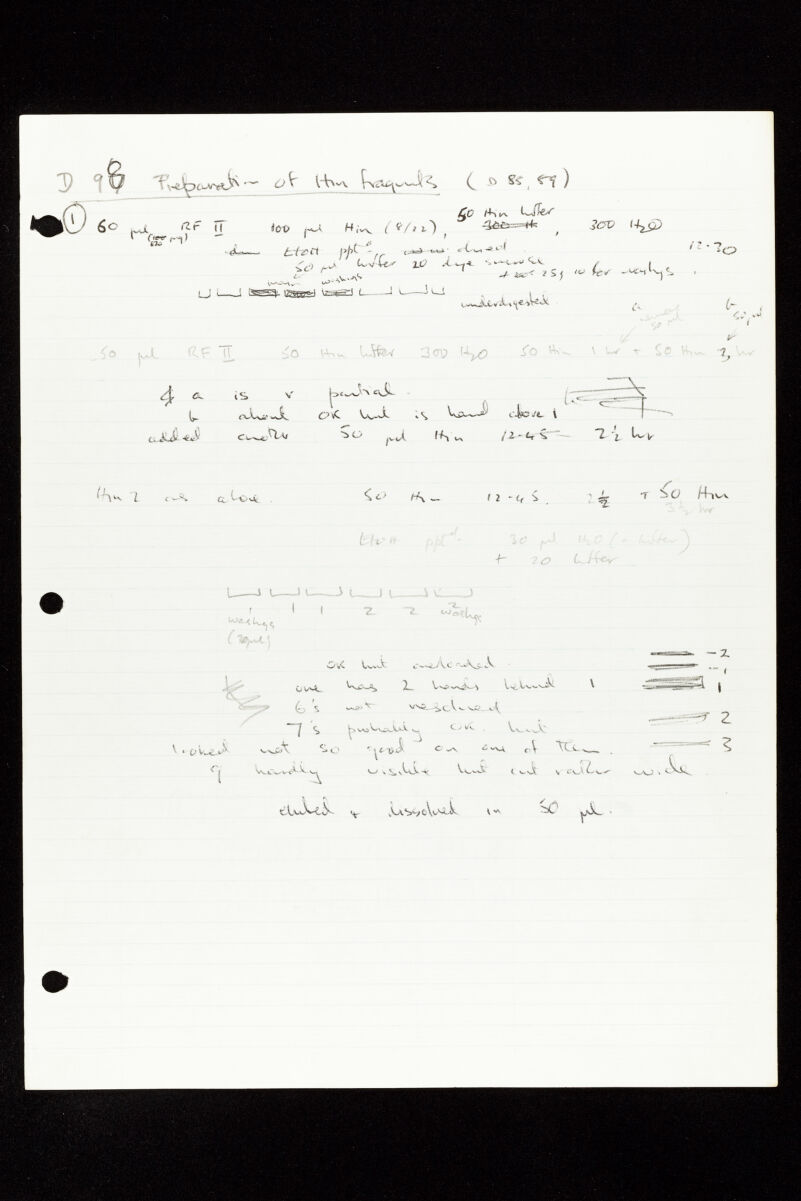 D 98 Preparation of Hin fragments (D 85, 89)
① 60 µl RF II 100 µl Hin (8/22), 50 Hin buffer, 300 H2O
EtOH pptd dried 12-30
50 µl buffer 20 dye sucrose
+ 25, 10 for washings.
washings
underdigested.
a b
50 µl
50 µl RF II 50 Hin buffer 300 H2O 50 Hin 1 hr + 50 Hin 3 hr
a is v partial.
b about OK but is band above 1
added another 50 µl Hin 12-45 2½ hr
Hin 2 as above. 50 Hin 12-45. 2½ + 50 Hin
3½ hr
EtOH pptd. 30 µl H2O (= buffer)
+ 20 buffer
1 1 1 2 2 2
washgs washgs
OK but overloaded.
one has 2 bands behind 1
6's not resolved
7's probably OK. but
looked not so good on one of them.
9 hardly visible but cut rather wide.
-2
-1
1
2
3
eluted + dissolved in 50 µl.